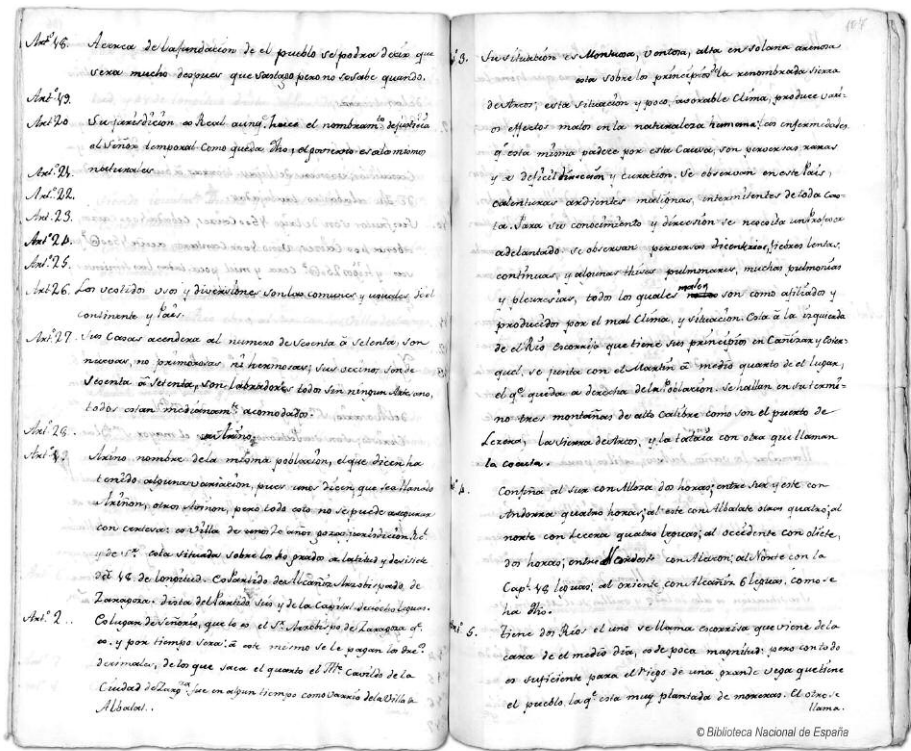 Art.º 18. Acerca de la fundacion de el pueblo se podra decir que
sera mucho despues que Santiago pero no se sabe quando.
Art.º 19.
Art.º 20 Su jurisdicion es Real aunq.e hace el nombram.to de justicia
el Señor temporal como queda dho, el govierno es a los mismos
naturales
Art.º 21.
Art.º 22.
Art.º 23.
Art.º 24.
Art.º 25.
Art.º 26. Los vestidos usos y diversiones son las comunes y usuales de el
continente y Pais.
Art.º 27. Sus Casas acendera al numero de sesenta â setenta, son
nuevas, no primorosas, ni hermosas; sus vecinos son de
sesenta â setenta, son labradores todos sin ningun Artesano,
todos estan medianam.te acomodados.
Art.º 28.
Ariño
Ariño nombre de la misma poblacion, el que dicen ha
tenido alguna variacion, pues unos dicen que se a llamado
Ariñon, otros pero todo esto no se puede asegurar
con certeza: es Villa de años goza jurisdicion R.l
y de S.r esta situada sobre los grados de latitud y dos
del 18 de longitud. Es Partido de Alcañiz Arzobispado de
Zaragoza. dista del Partido seis y de la Capital dieciocho leguas.
Art.º 2. Es lugar de Señorio, que lo es el S.r Arzobispo de Zaragoza q.e
es. y por tiempo sera: â este mismo se le pagan los dre.s
decimales, de los que saca el quarto el Cavildo de la
Ciudad de Zarag.za fue en algun tiempo como varrio de la Villa de
Albalate.
107
3. Su situacion es Montuosa, ventosa, alta en solana arenosa
esta sobre los principios de la renombrada sierra
de Arcos; esta situacion y poco favorable Clima, produce vari-
os effectos malos en la naturaleza humana: las enfermedades
q.e esta misma padece por esta Causa, son perversas, raras
y de dificil direccion y curacion. Se observan en este Pais,
calenturas ardientes malignas, intermitentes de toda cas-
ta. Para su conocimiento y direccion se necesita un Profesor
adelantado. se observan perversas dicenterias, fiebres lentas,
continuas, y algunas thisis pulmonares, muchas pulmonias
y pleuresias, todos los quales males son como afiliados y
producidos por el mal Clima, y situacion. Esta â la izquierda
de el Rio Escorriza que tiene sus principios en Cañizar y Ester-
quel, se junta con el Martin â medio quarto de el lugar,
el q.e queda a derecha de la Poblacion. Se hallan en su termi-
no tres montañas de alto Calibre como son el puerto de
Lecera, la sierra de Arcos, y la con otra que llaman
la
4. Confina al sur con Alloza dos horas; entre sur y este con
Andorra quatro horas; al este con Albalate otras quatro; al
norte con Lecera quatro leguas; al occidente con Oliete,
dos horas; entre con Alacon; al Norte con la
Cap.l 18 leguas; al oriente con Alcañiz 6 leguas, como se
ha dho.
5. Tiene dos Rios el uno se llama escorriza que viene de la
cara de el medio dia, es de poca magnitud: pero con todo
es suficiente para el riego de una grande vega que tiene
el pueblo, la q.e esta muy plantada de moreras. El otro se
llama.
© Biblioteca Nacional de España